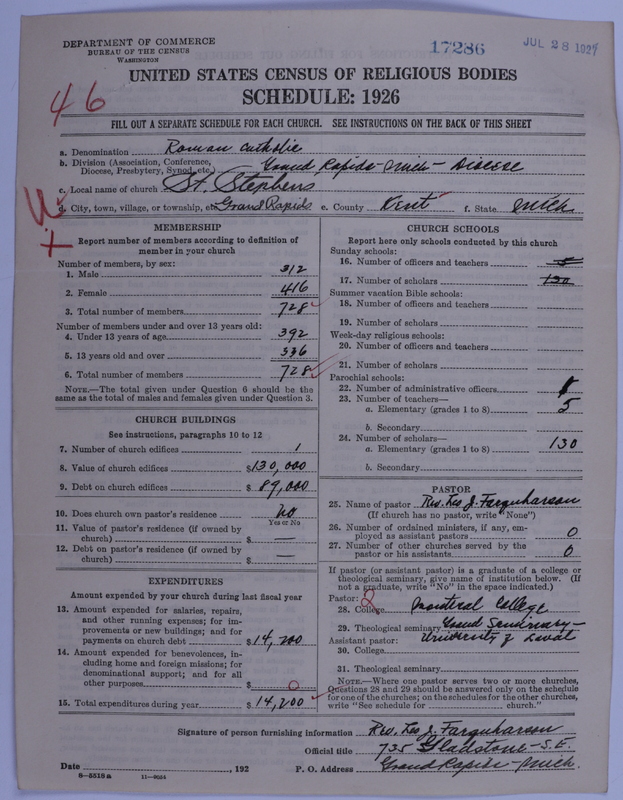 DEPARTMENT OF COMMERCE
BUREAU OF THE CENSUS
WASHINGTON
17286
JUL 28 1927
46
UNITED STATES CENSUS OF RELIGIOUS BODIES
SCHEDULE: 1926
FILL OUT A SEPARATE SCHEDULE FOR EACH CHURCH. SEE INSTRUCTIONS ON THE BACK OF THIS SHEET
a. Denomination Roman Catholic
b. Division (Association, Conference, Diocese, Presbytery, Synod, etc.) Grand Rapids-Mich-Diocese
c. Local name of church St. Stephens
d. City, town, village, or township, etc Grand Rapids e. County Kent f. State Mich
MEMBERSHIP
Report number of members according to definition of
member in your church
Number of members, by sex:
1. Male 312
2. Female 416
3. Total number of members 728
Number of members under and over 13 years old:
4. Under 13 years of age 392
5. 13 years old and over 336
6. Total number of members 728
NOTE.—The total given under Question 6 should be the
same as the total of males and females given under Question 3.
CHURCH BUILDINGS
See instructions, paragraphs 10 to 12
7. Number of church edifices 1
8. Value of church edifices $130,000
9. Debt on church edifices $89,000
10. Does church own pastor's residence? No
Yes or No
11. Value of pastor's residence (if owned by
church) $ —
12. Debt on pastor's residence (if owned by
church) $ —
EXPENDITURES
Amount expended by your church during last fiscal year
13. Amount expended for salaries, repairs,
and other running expenses; for im-
provements or new buildings; and for
payments on church debt $14,200
14. Amount expended for benevolences, in-
cluding home and foreign missions; for
denominational support; and for all
other purposes $ 0
15. Total expenditures during year $14,200
CHURCH SCHOOLS
Report here only schools conducted by this church
Sunday schools:
16. Number of officers and teachers 5
17. Number of scholars 130
Summer vacation Bible schools:
18. Number of officers and teachers
19. Number of scholars
Week-day religious schools:
20. Number of officers and teachers
21. Number of scholars
Parochial schools:
22. Number of administrative officers
23. Number of teachers—
a. Elementary (grades 1 to 8) 5
b. Secondary
24. Number of scholars—
a. Elementary (grades 1 to 8) 130
b. Secondary
PASTOR
25. Name of pastor Rev. Leo J. Farquharson
(If church has no pastor, write "None")
26. Number of ordained ministers, if any, em-
ployed as assistant pastors 0
27. Number of other churches served by the
pastor or his assistants 0
If pastor (or assistant pastor) is a graduate of a college or
theological seminary, give name of institution below. (If
not a graduate, write "No" in the space indicated.)
Pastor:
28. College Montreal College
29. Theological seminary Grand Seminary-
Assistant pastor: University of Laval
30. College
31. Theological seminary
NOTE.—Where one pastor serves two or more churches,
Questions 28 and 29 should be answered only on the schedule
for one of the churches; on the schedules for the other churches,
write "See schedule for church."
Signature of person furnishing information Rev. Leo J. Farquharson
Official title 735 Gladstone-S.E.
Date , 192 P. O. Address Grand Rapids-Mich.
8-5518a 11-9034